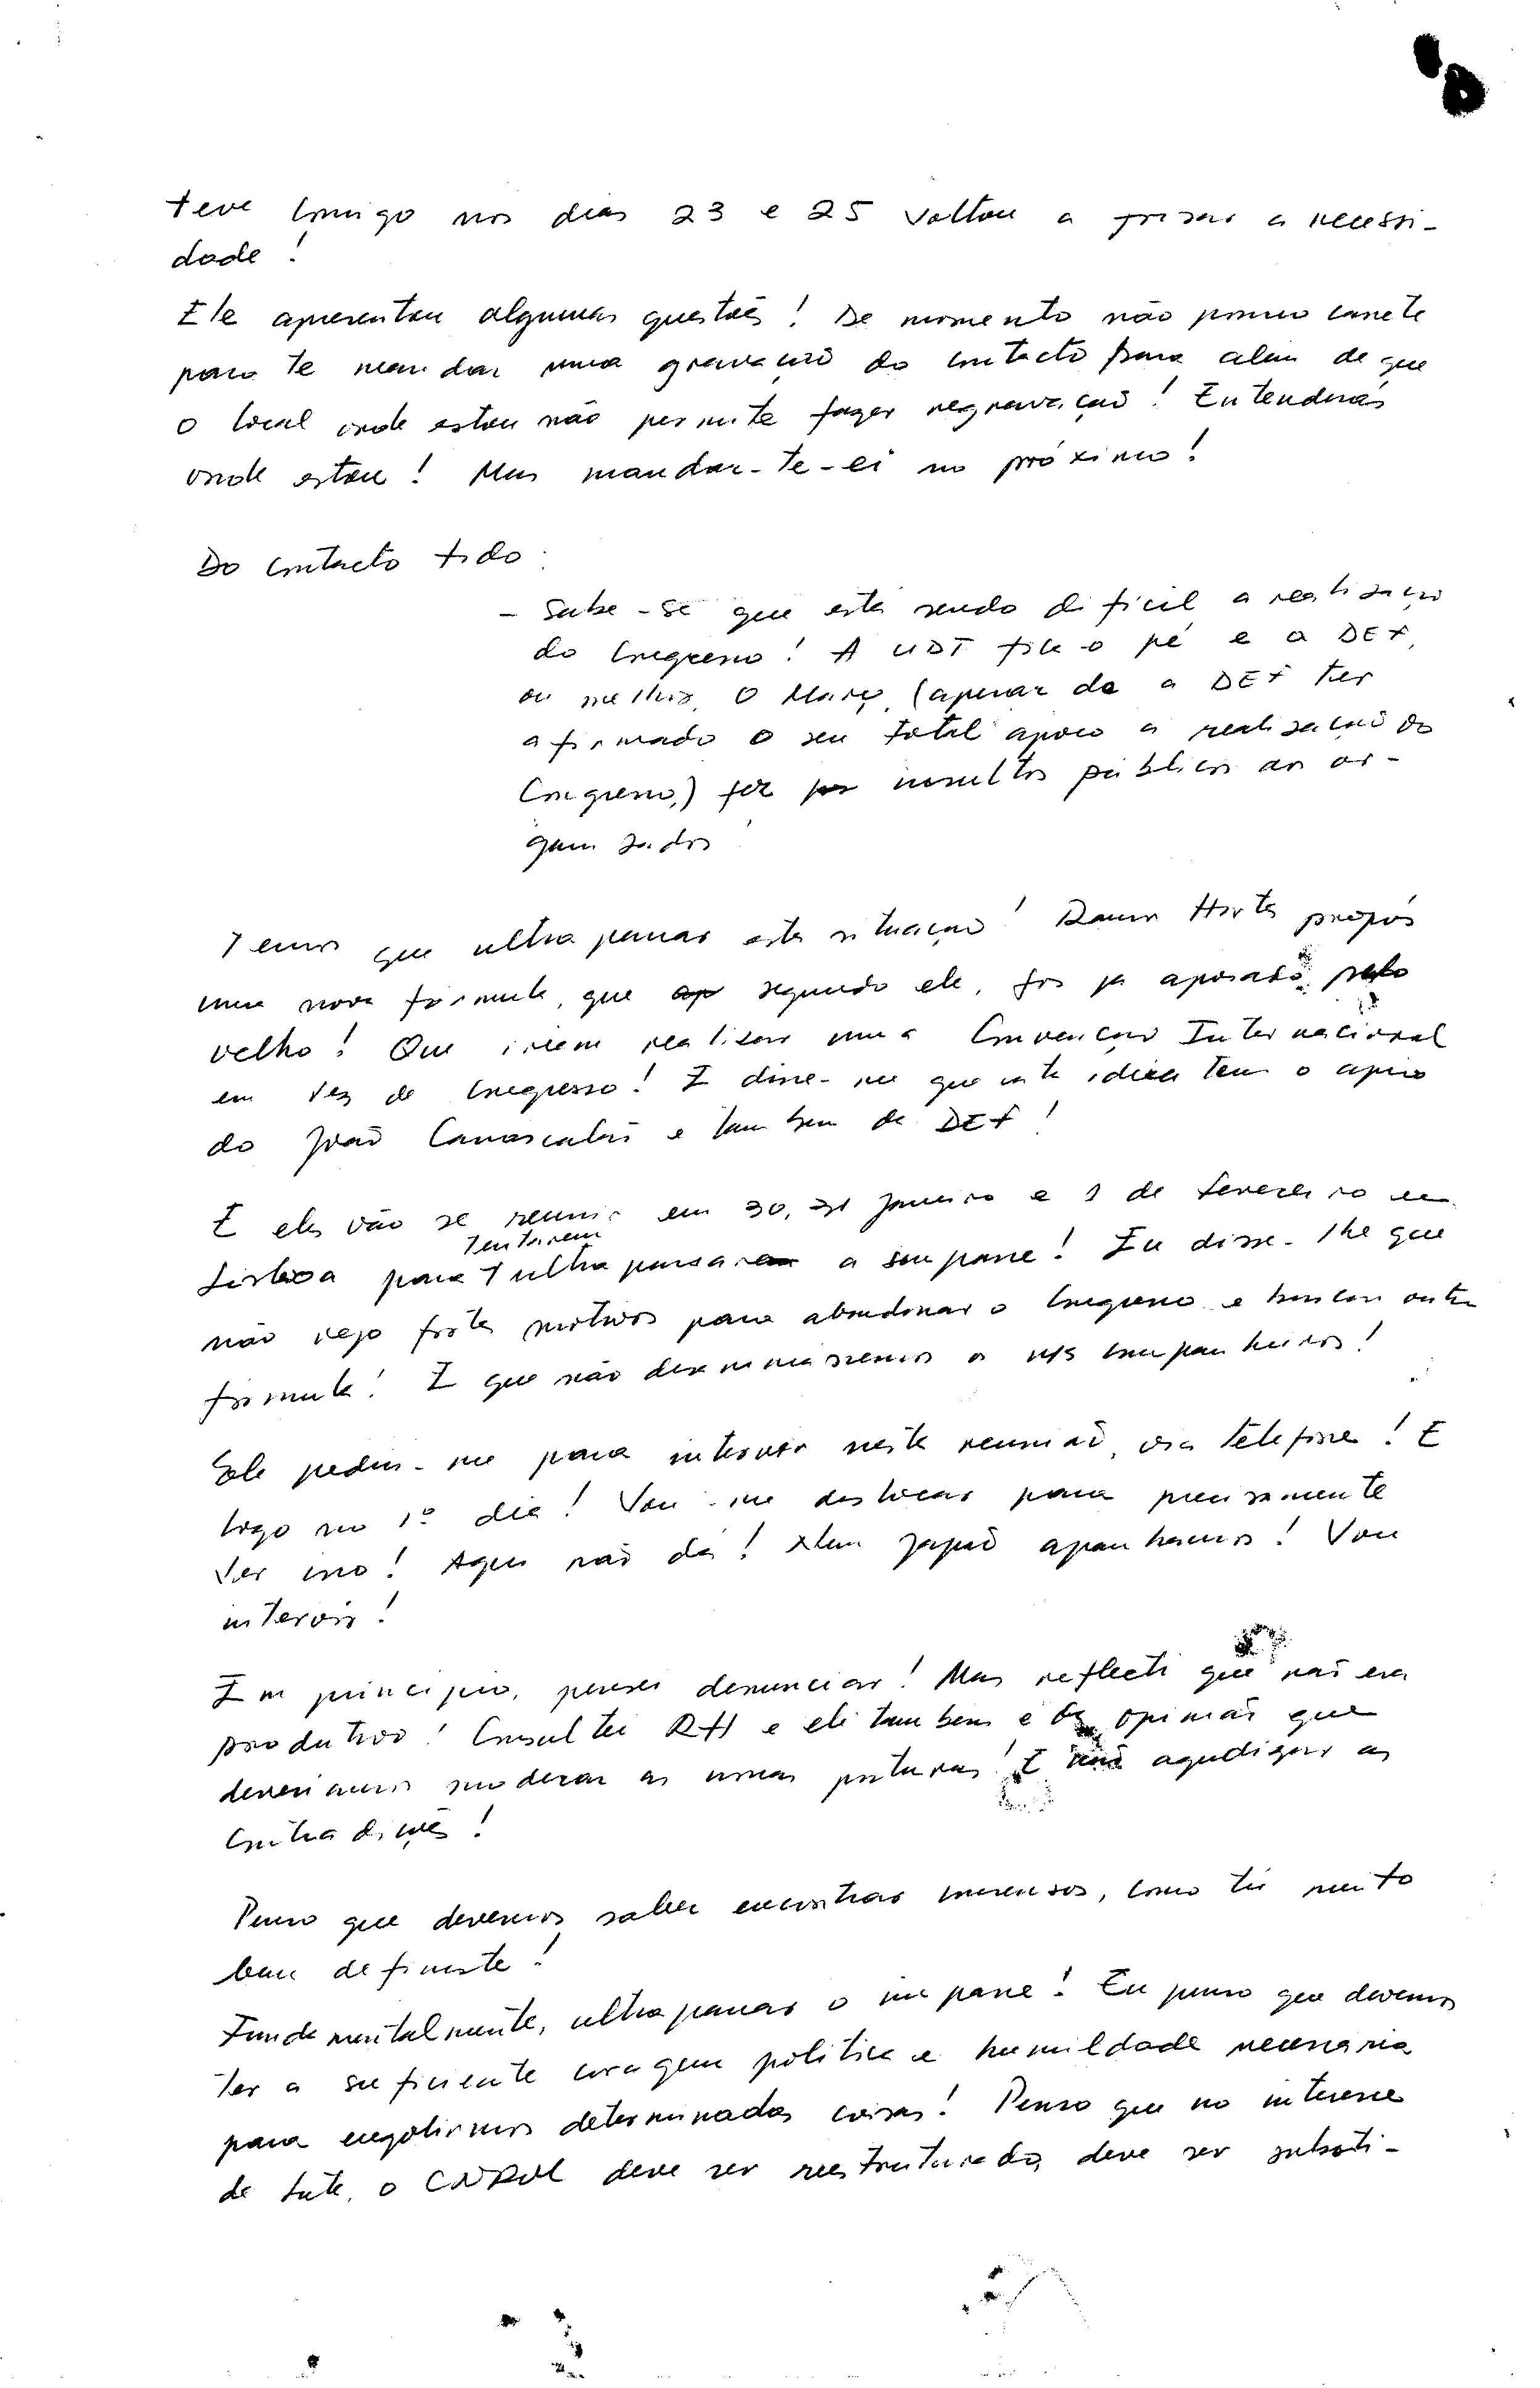 teve comigo nos dias 23 e 25 voltou a frisar a necessi-
dade!
Ele apresentou algumas questões! De momento não possuo canete
para te mandar uma gravação do contacto para alem de que
o local onde estou não permite fazer regravação! Entenderás
onde estou! Mas mandar-te-ei no próximo!
Do contacto tido:
- Sabe-se que está sendo dificil a realisação
do Congresso! A UDT fica o pé e a DEF,
ou melhor, o Março, (apesar da a DEF ter
afirmado o seu total apoio a realisação do
Congresso,) fez insultos públicos aos or-
ganisados
Temos que ultrapassar esta situação! Ramos Horta propôs
uma nova fórmula, que segundo ele, foi já apoiado pelo
velho! Que iriam realisar uma Convenção Internacional
em vez de Congresso! E disse-me que esta ideia tem o apoio
do João Carrascalão e tambem da DEF!
E eles vão se reunir em 30, 31 Janeiro e 1 de Fevereiro em
tentarem
Lisboa para ultrapassar o impasse! Eu disse-lhe que
não vejo fortes motivos para abandonar o Congresso e buscar outra
fórmula! E que não desanimassemos os n/s companheiros!
Ele pediu-me para intervir nesta reunião, via telefone! E
logo no 1º dia! Vou-me deslocar para precisamente
ver isso! Aqui não dá! Nem Japão apanhamos! Vou
intervir!
Em principio, pensei denunciar! Mas reflecti que não era
produtivo! Consultei RH e ele tambem é da opinião que
deveriamos moderar as nossas posturas! E não agudizar as
contradições!
Penso que devemos saber encontrar consensos, como tu muito
bem definiste!
Fundamentalmente, ultrapassar o impasse! Eu penso que devemos
ter a suficiente coragem politica e humildade necessaria
para engolirmos determinadas coisas! Penso que no interesse
de luta, o CNRM deve ser reestruturado, deve ser substi-